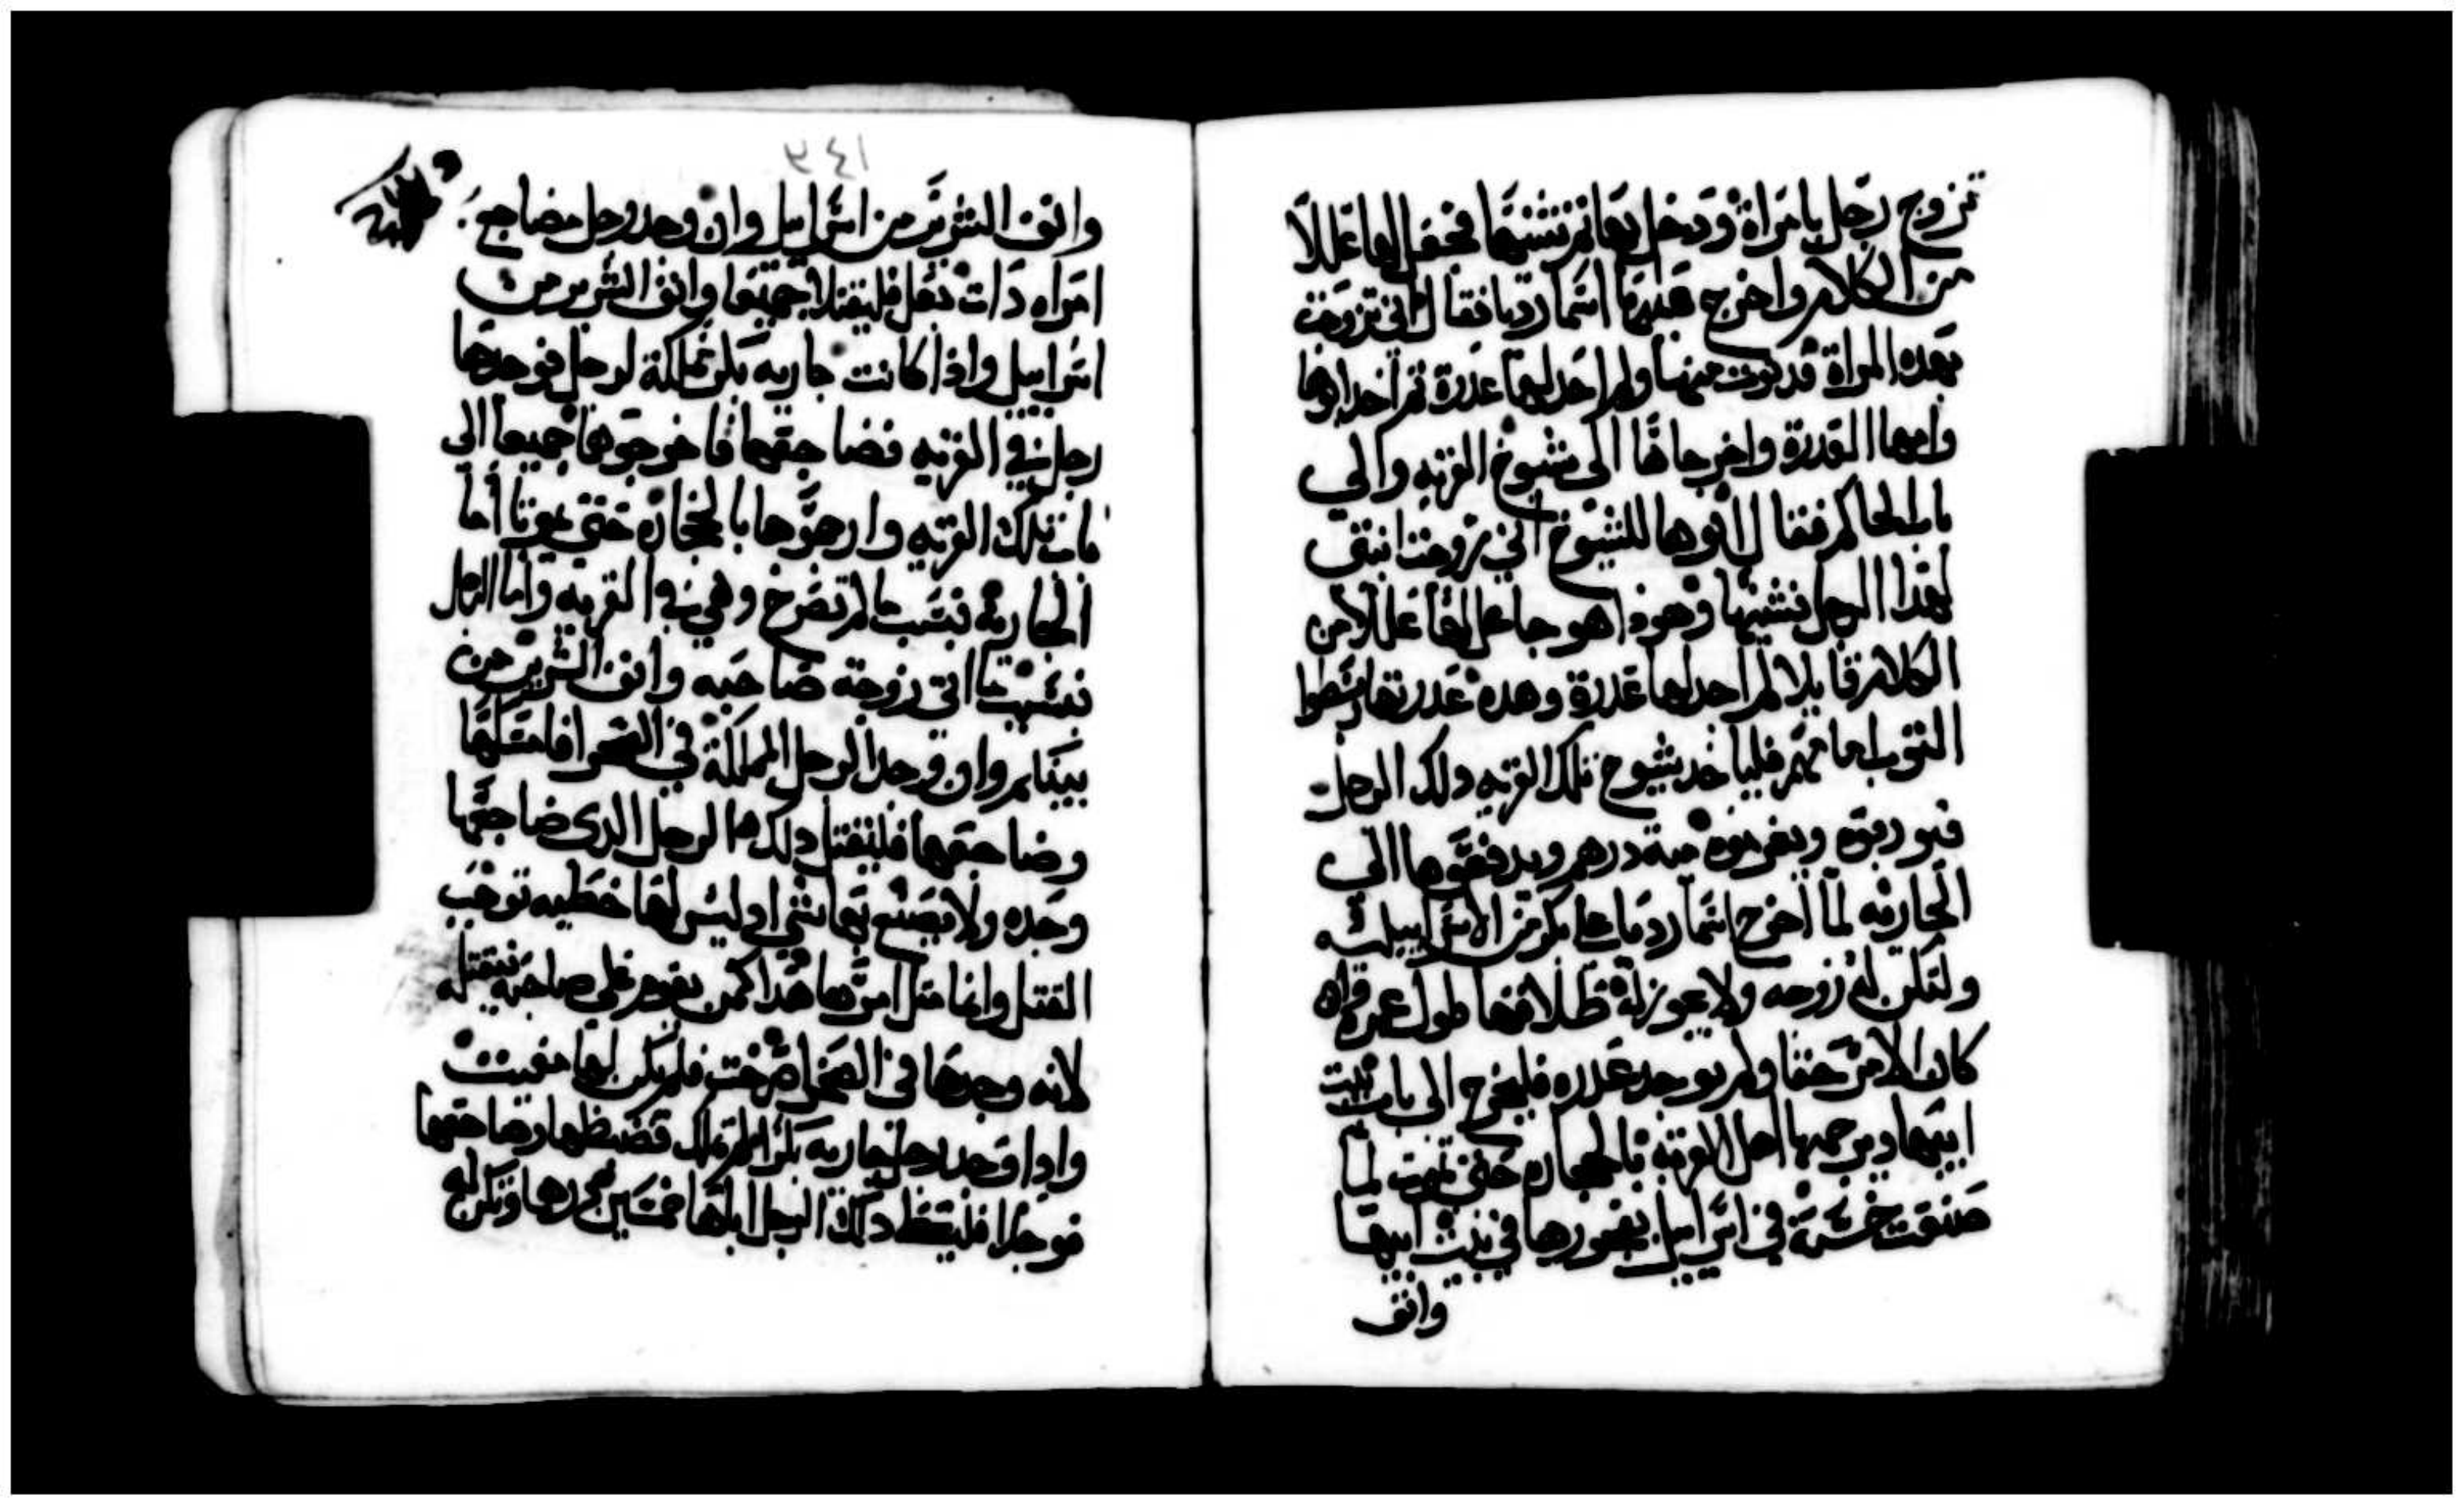 تزوج رجل بامراة ودخل بها ثم تشنيها فجعل لها عللاً
من الكلام واخرج عليها اسما رديا فقال اني تزوجت
بهده المراة قد نوت منها ولم اجد لها عدرة ثم اخد ابوها
وامها العدرة واخرجاها الى شيوخ القريه والي
باب الحاكم فقال ابوها للشيوخ اني زوجت ابنتي
لهدا الرجل فشنيها وهودا هو جاعل لها عللا من
الكلام قايلا لم اجد لها عدرة وهده عدرتها بسطوا
التوب امامهم فلياخد شيوخ تلك القريه دلك الرجل
فيودبوه ويغرموه مية درهم ويدفعوها الى
الجاريه لما اخرج اسما رديا على بكر من الاسراييليه
ولتكن له زوجه ولا يجوز له طلاقها طول عمره وان
كان الامر حقا ولم توجد عدره فليخرج الى باب بيت
ابيها ويرجمها اهل القريه بالحجاره حتى تموت لما
صنعت في اسراييل بفجورها في بيت ابيها
وانف
١٤٢
وانف الشرير من اسراييل وان وجد رجل مضاجع
امراه دات بعل فليقتلا جميعا وانف الشرير من
اسراييل واذا كانت جاريه بكر مملكة لرجل فوجدها
رجل في القريه فضاجعها فاخرجوهما جميعا الى
باب تلك القريه وارجموهما بالحجاره حتى يموتا اما
الجاريه فبسبب ما لم تصرخ وهي في القريه واما الرجل
فبسبب ما اتى زوجة صاحبه وانف الشرير من
بينكم وان وجد الرجل المملكة في الصحرا فامسكها
وضاجعها فليقتل دلك الرجل الدى ضاجعها
وحده ولا يصنع بها شي اد ليس لها خطيه توجب
القتل وانما مثل امرها هدا كمن يقوم على صاحبه فيقتله
لانه وجدها في الصحرا صرخت فلم يكن لها مغيت
وادا وجد رجل جاريه بكرا لم تملك فضبطها وضاجعها
فوجدا فليعط دلك الرجل اباها خمسين درهما وتكن له